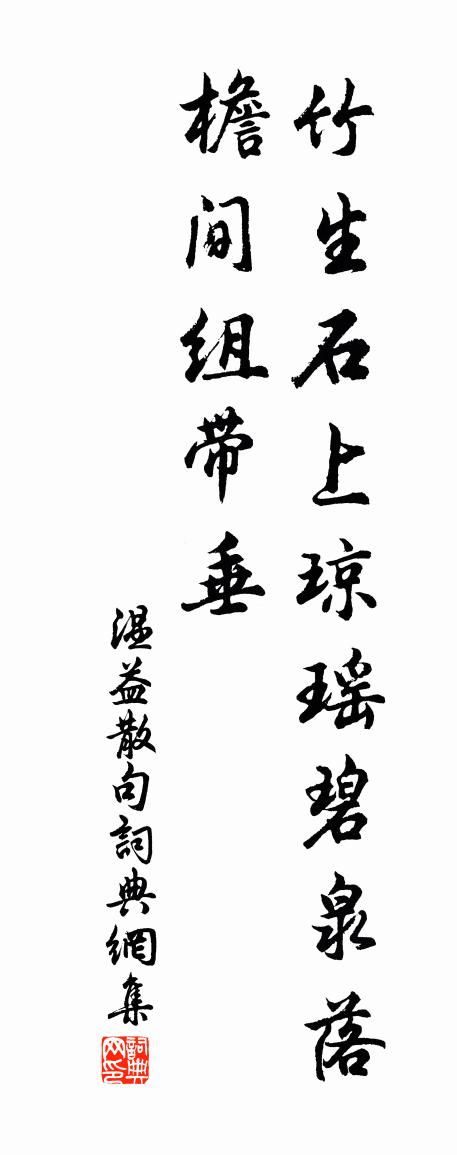 竹生石上琼瑶碧泉落
檐间组带垂
温益散句詞典網集
詞典网印